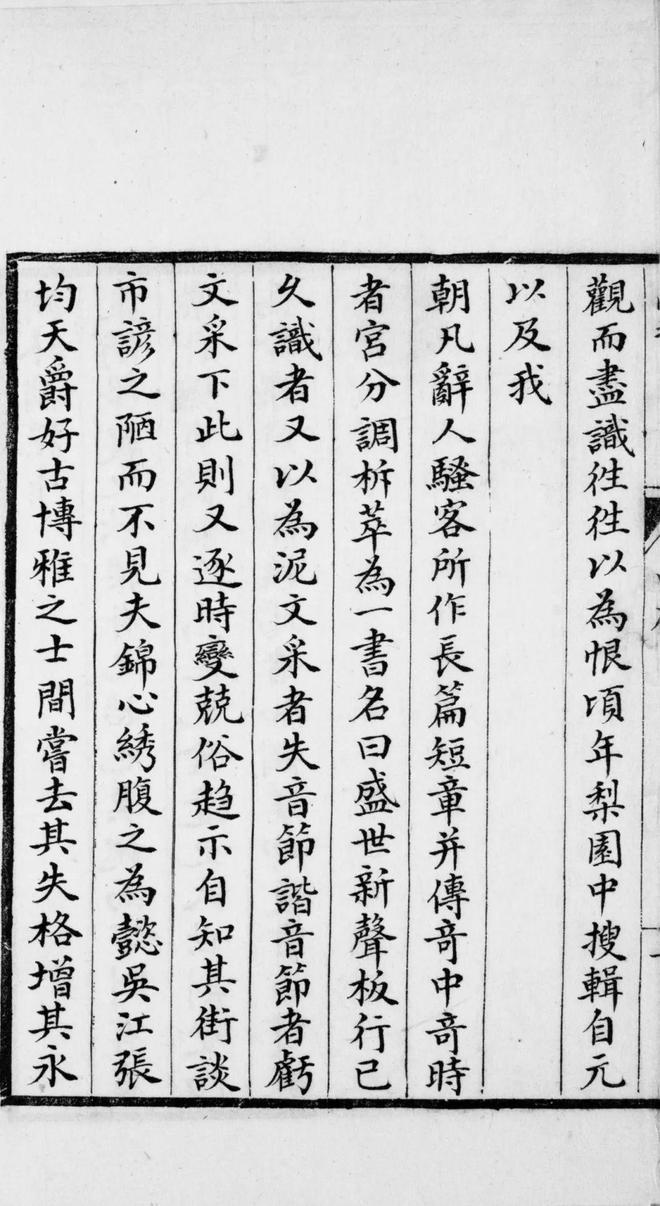 觀而盡識徃徃以為恨頃年梨園中搜輯自元
以及我
朝凡辭人騷客所作長篇短章并傳奇中奇時
者宮分調析萃為一書名曰盛世新聲板行已
乆識者又以為泥文采者失音節諧音節者虧
文采下此則又逐時變兢俗趋示自知其街談
市諺之陋而不見夫錦心綉腹之為懿吳江張
均天爵好古博雅之士間嘗去其失格增其永